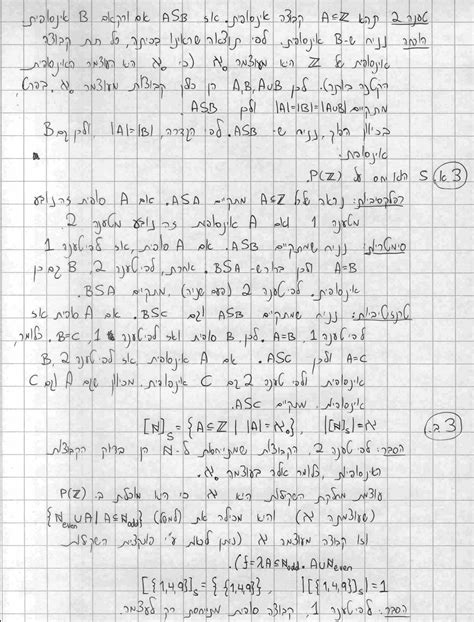 טענה 2 תהא A⊆ℤ קבוצה אינסופית. אז ASB אם ורק אם B אינסופית
הוכחה נניח ש-B אינסופית. לפי תוצאה שראינו בכיתה, כל תת קבוצה
אינסופית של ℤ היא מעוצמה ℵ₀ (כי ℵ₀ היא העוצמה האינסופית
הקטנה ביותר). לכן A,B,A∪B הן כולן קבוצות מעוצמה ℵ₀, בפרט
מתקיים |A|=|B|=|A∪B| ולכן ASB.
בכיוון ההפוך, נניח ש- ASB. לפי הגדרה, |A|=|B|, ולכן גם B
אינסופית.
3.א. S הוא יחס על P(ℤ).
רפלקסיביות: נראה שלכל A⊆ℤ מתקיים ASA. אם A סופית זה נובע
מטענה 1 ואם A אינסופית זה נובע מטענה 2
סימטריות: נניח שמתקיים ASB. אם A סופית, אז לפי טענה 1
A=B ולכן ברור ש- BSA. אחרת, לפי טענה 2, B גם כן
אינסופית. לפי טענה 2 (פעם שניה), מתקיים BSA.
טרנזיטיביות: נניח שמתקיים ASB וגם BSC. אם A סופית אז
לפי טענה 1, A=B. לכן, B סופית ואז לפי טענה 1, B=C. כלומר,
A=C ולכן ASC. אם A אינסופית, אז לפי טענה 2 B,
אינסופית ולפי טענה 2 גם C אינסופית. מכיוון שגם A וגם C
אינסופיות, מתקיים ASC.
3.ב. [ℕ]ₛ = {A⊆ℤ | |A|=ℵ₀}, |[ℕ]ₛ|=ℵ
הסבר: לפי טענה 2, הקבוצות שמתייחסות ל-ℕ הן בדיוק הקבוצות
האינסופיות, כלומר אלה בעוצמה ℵ₀.
עוצמת מחלקת השקילות היא ℵ כי היא מוכלת ב- P(ℤ)
(שעוצמתה ℵ) והיא מכילה את (למשל) {ℕeven∪A | A⊆ℕodd}
וזו קבוצה מעוצמה ℵ (ניתן לזהות ע"י פונקציית השקילות
f=λA⊆ℕodd. A∪ℕeven).
[{1,4,9}]ₛ = {{1,4,9}}, |[{1,4,9}]ₛ|=1
הסבר: לפי טענה 1, קבוצה סופית מתייחסת רק לעצמה.